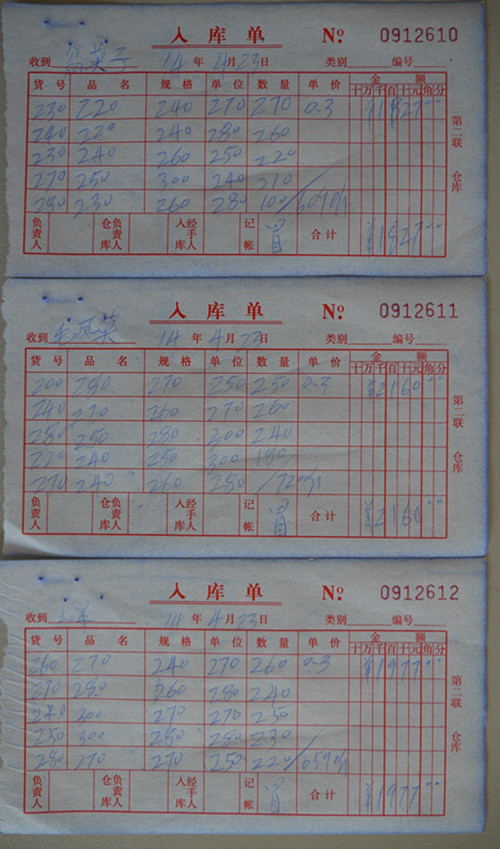 入库单 Nº 0912610
收到 翁英子 14年4月23日 类别 编号
货号 品名 规格 单位 数量 单价 金额
十万千百十元角分
230 220 240 270 270 0.3 ¥1827 00
240 220 240 280 260
230 240 260 250 220
270 250 300 240 210
280 230 260 280 100/6090小
负责人 仓库负责人 经手人入库 记帐 合计 ¥1827 00
第二联 仓库
入库单 Nº 0912611
收到 毛凤英 14年4月23日 类别 编号
货号 品名 规格 单位 数量 单价 金额
十万千百十元角分
200 280 270 250 250 0.3 ¥2160 00
240 220 260 270 260
280 250 280 300 240
220 240 250 300 180
270 240 260 280 /7200小
负责人 仓库负责人 经手人入库 记帐 合计 ¥2160 00
第二联 仓库
入库单 Nº 0912612
收到 14年4月23日 类别 编号
货号 品名 规格 单位 数量 单价 金额
十万千百十元角分
260 270 240 270 260 0.3 ¥1977 00
270 280 260 280 240
240 300 270 270 250
250 300 280 280 230
280 270 270 250 220/6590小
负责人 仓库负责人 经手人入库 记帐 合计 ¥1977 00
第二联 仓库